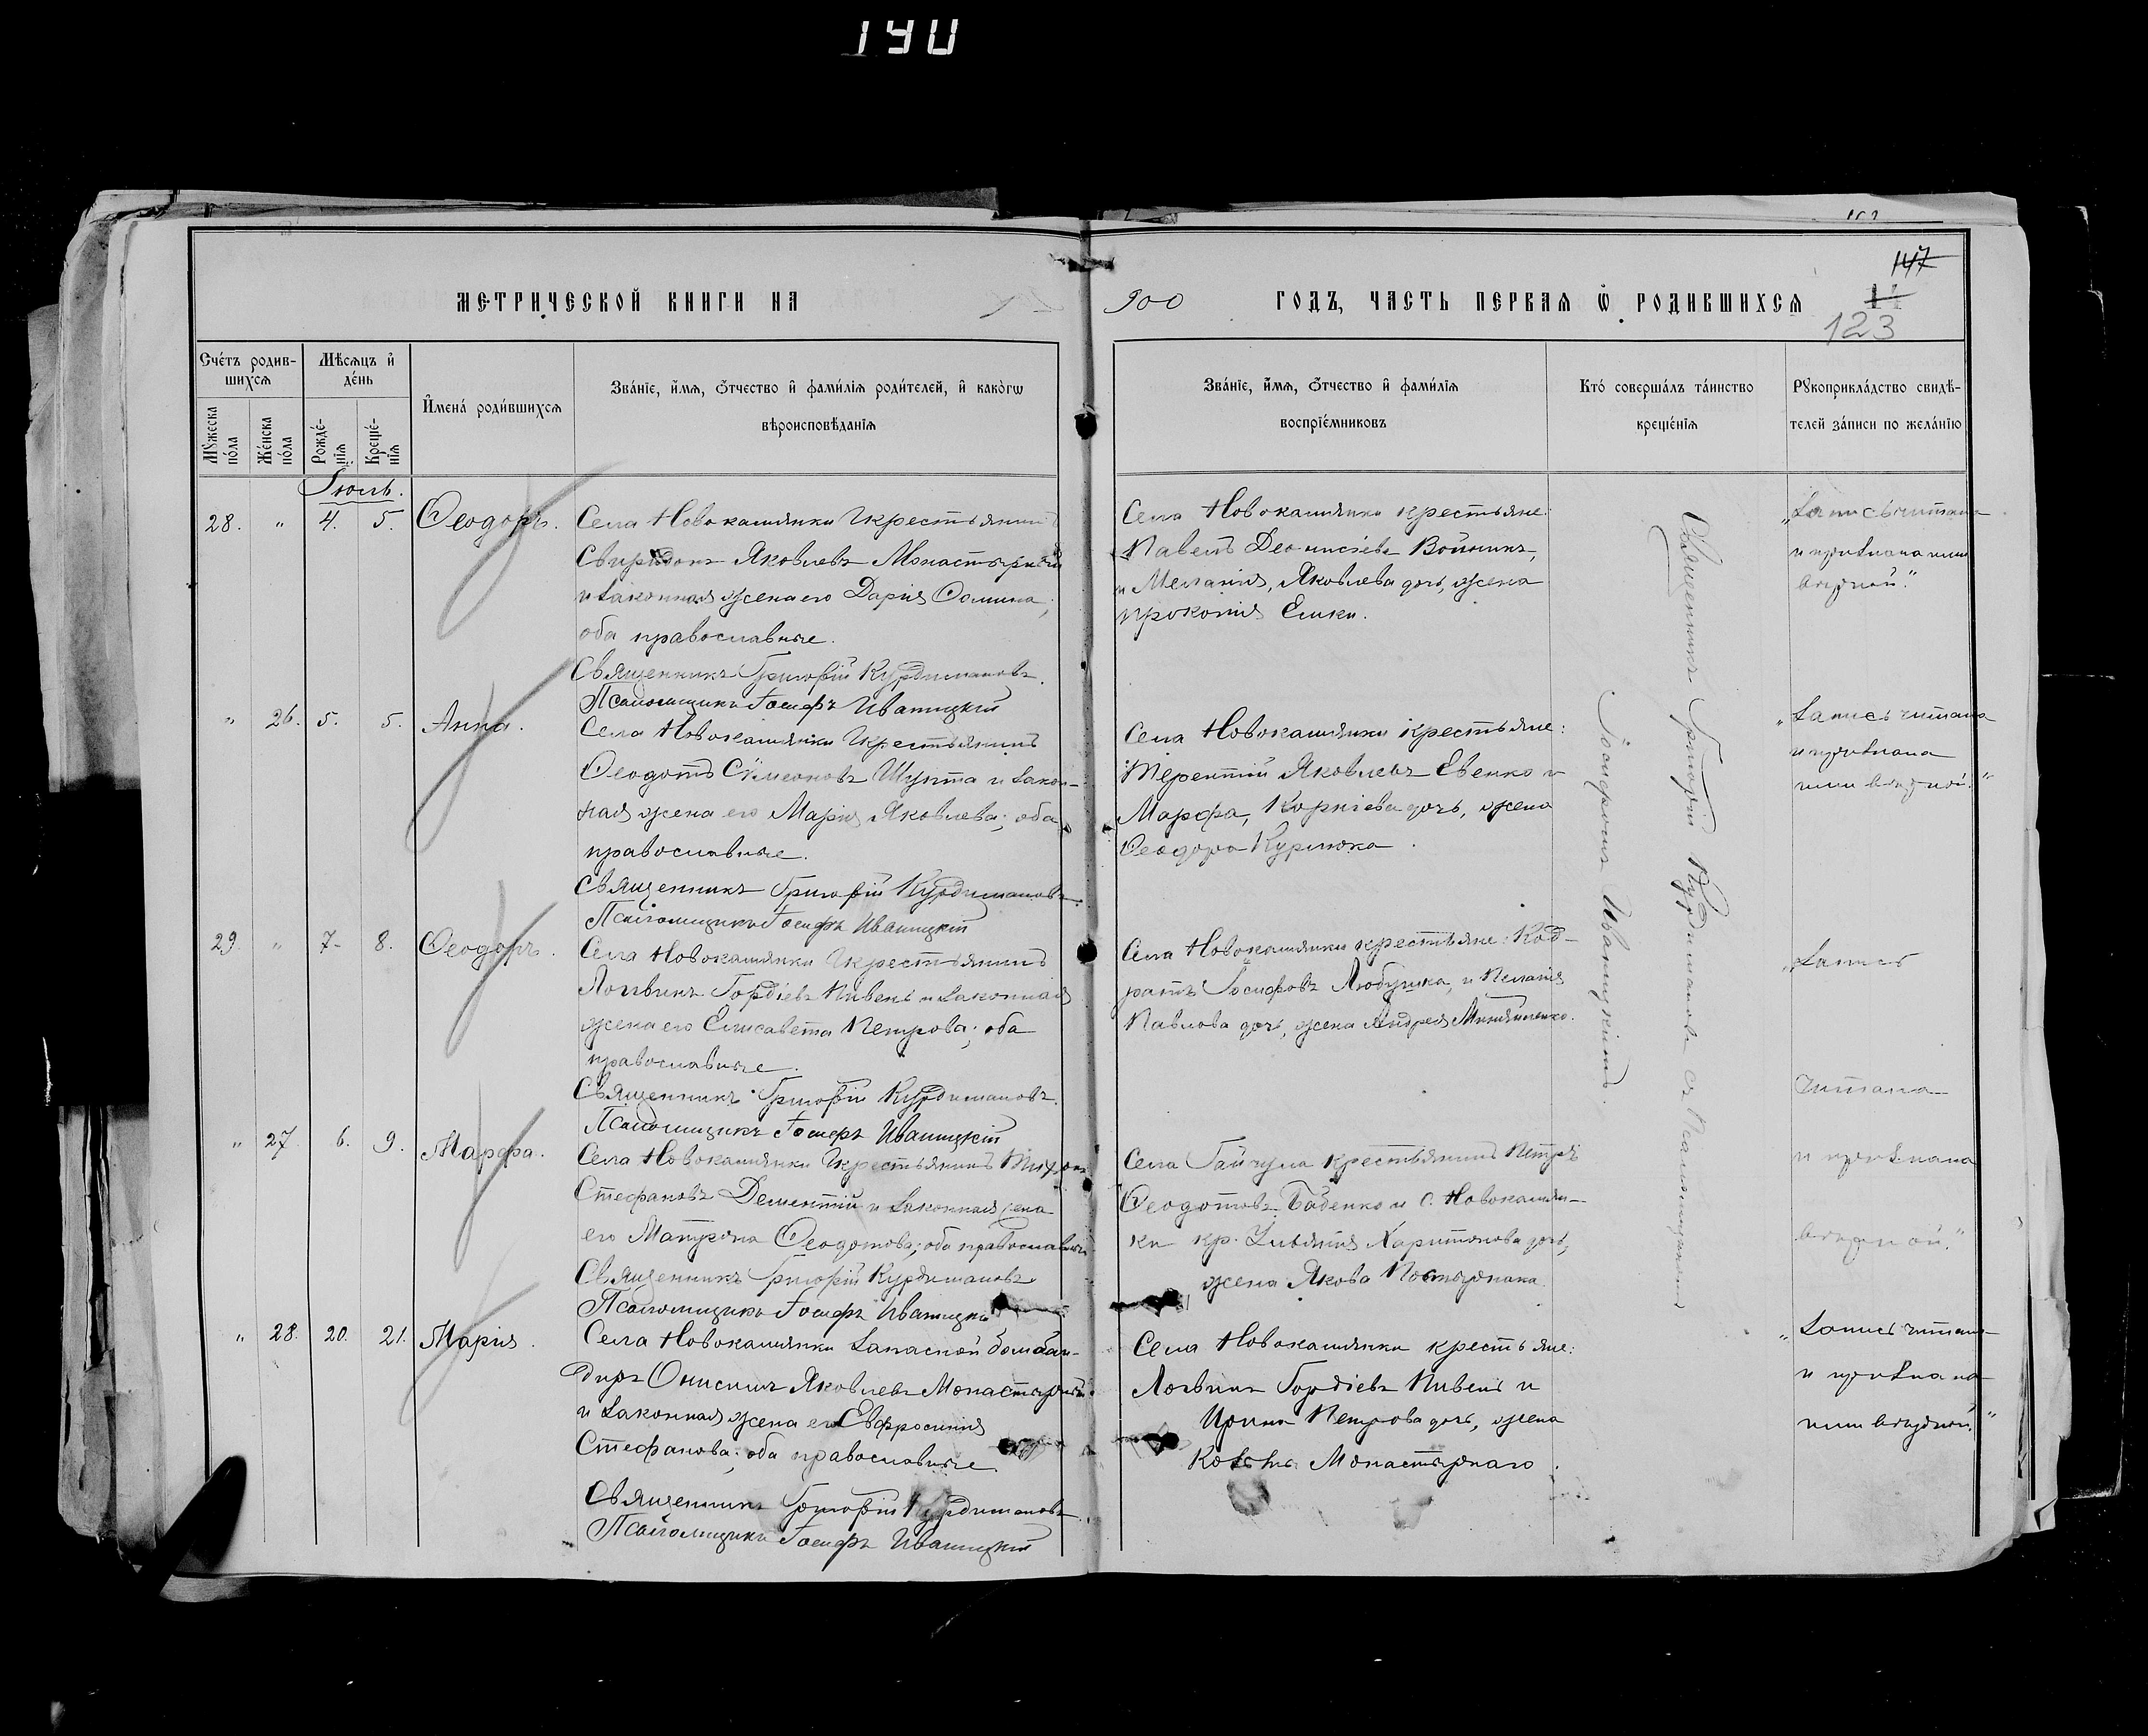 190
147
11
123
МЕТРИЧЕСКОЙ КНИГИ НА 1
900 ГОДЪ, ЧАСТЬ ПЕРВАЯ Ѡ РОДИВШИХСЯ
Счéтъ родившихся
Мѣсяцъ и дéнь
Мꙋжеска пóла
Жéнска пóла
Рождéнія
Крещéнія
Именá родившихся
Звáніе, имя, ѻтчество и фамилія родителей, и какóгѡ
вѣроисповѣданія
Звáніе, имя, ѻтчество и фамилія
воспріéмниковъ
Ктó совершáлъ тáинство
крещéнія
Рꙋкоприклáдство свидѣ-
телей зáписи по желáнію
Іюль.
28. " 4. 5. Ѳеодоръ.
Села Новокамянки крестьянинъ
Свиридонъ Яковлевъ Монастырный
и законная жена его Дарія Фомина;
оба православные.
Священникъ Григорій Курдимановъ.
Псаломщикъ Іосифъ Иваницкій
Села Новокамянки крестьяне:
Павелъ Деонисіевъ Войникъ,
и Меланія, Яковлева дочь, жена
Прокопія Елики.
„Запись читана
и признана нами
вѣрной."
" 26. 5. 5. Анна.
Села Новокамянки крестьянинъ
Ѳеодотъ Сѵмеоновъ Шупта и закон-
ная жена его Марія Яковлева; оба
православные.
Священникъ Григорій Курдимановъ.
Псаломщикъ Іосифъ Иваницкій
Села Новокамянки крестьяне:
Терентій Яковлевъ Евенко и
Марфа, Корніева дочь, жена
Ѳеодора Курлюка.
„Запись читана
и признана
нами вѣрной."
29. " 7. 8. Ѳеодоръ.
Села Новокамянки крестьянинъ
Логвинъ Гордіевъ Пивень и законная
жена его Елисавета Петрова; оба
православные.
Священникъ Григорій Курдимановъ.
Псаломщикъ Іосифъ Иваницкій
Села Новокамянки крестьяне: Код-
ратъ Іосифовъ Любушка, и Пелагія
Павлова дочь, жена Андрея
„Запись
читана
и признана
вѣрной."
" 27. 6. 9. Марфа.
Села Новокамянки крестьянинъ Тихонъ
Стефановъ Дементій и законная жена
его Матрона Ѳеодотова; оба православные
Священникъ Григорій Курдимановъ
Псаломщикъ Іосифъ Иваницкій
Села Гайчула крестьянинъ Петръ
Ѳеодотовъ Бабенко и с. Новокамян-
ки кр. Харитонова дочь,
жена Якова
" 28. 20. 21. Марія.
Села Новокамянки запасной бомбан-
диръ Онисимъ Яковлевъ Монастырный
и законная жена его Евфросинія
Стефанова; оба православные
Священникъ Григорій Курдимановъ.
Псаломщикъ Іосифъ Иваницкій
Села Новокамянки крестьяне:
Логвинъ Гордіевъ Пивень и
Ирина Петрова дочь, жена
Козьмы Монастырнаго.
„Запись читана
и признана
нами вѣрной."
Священникъ Григорій Курдимановъ съ Псаломщикомъ
Іосифомъ Иваницкимъ.